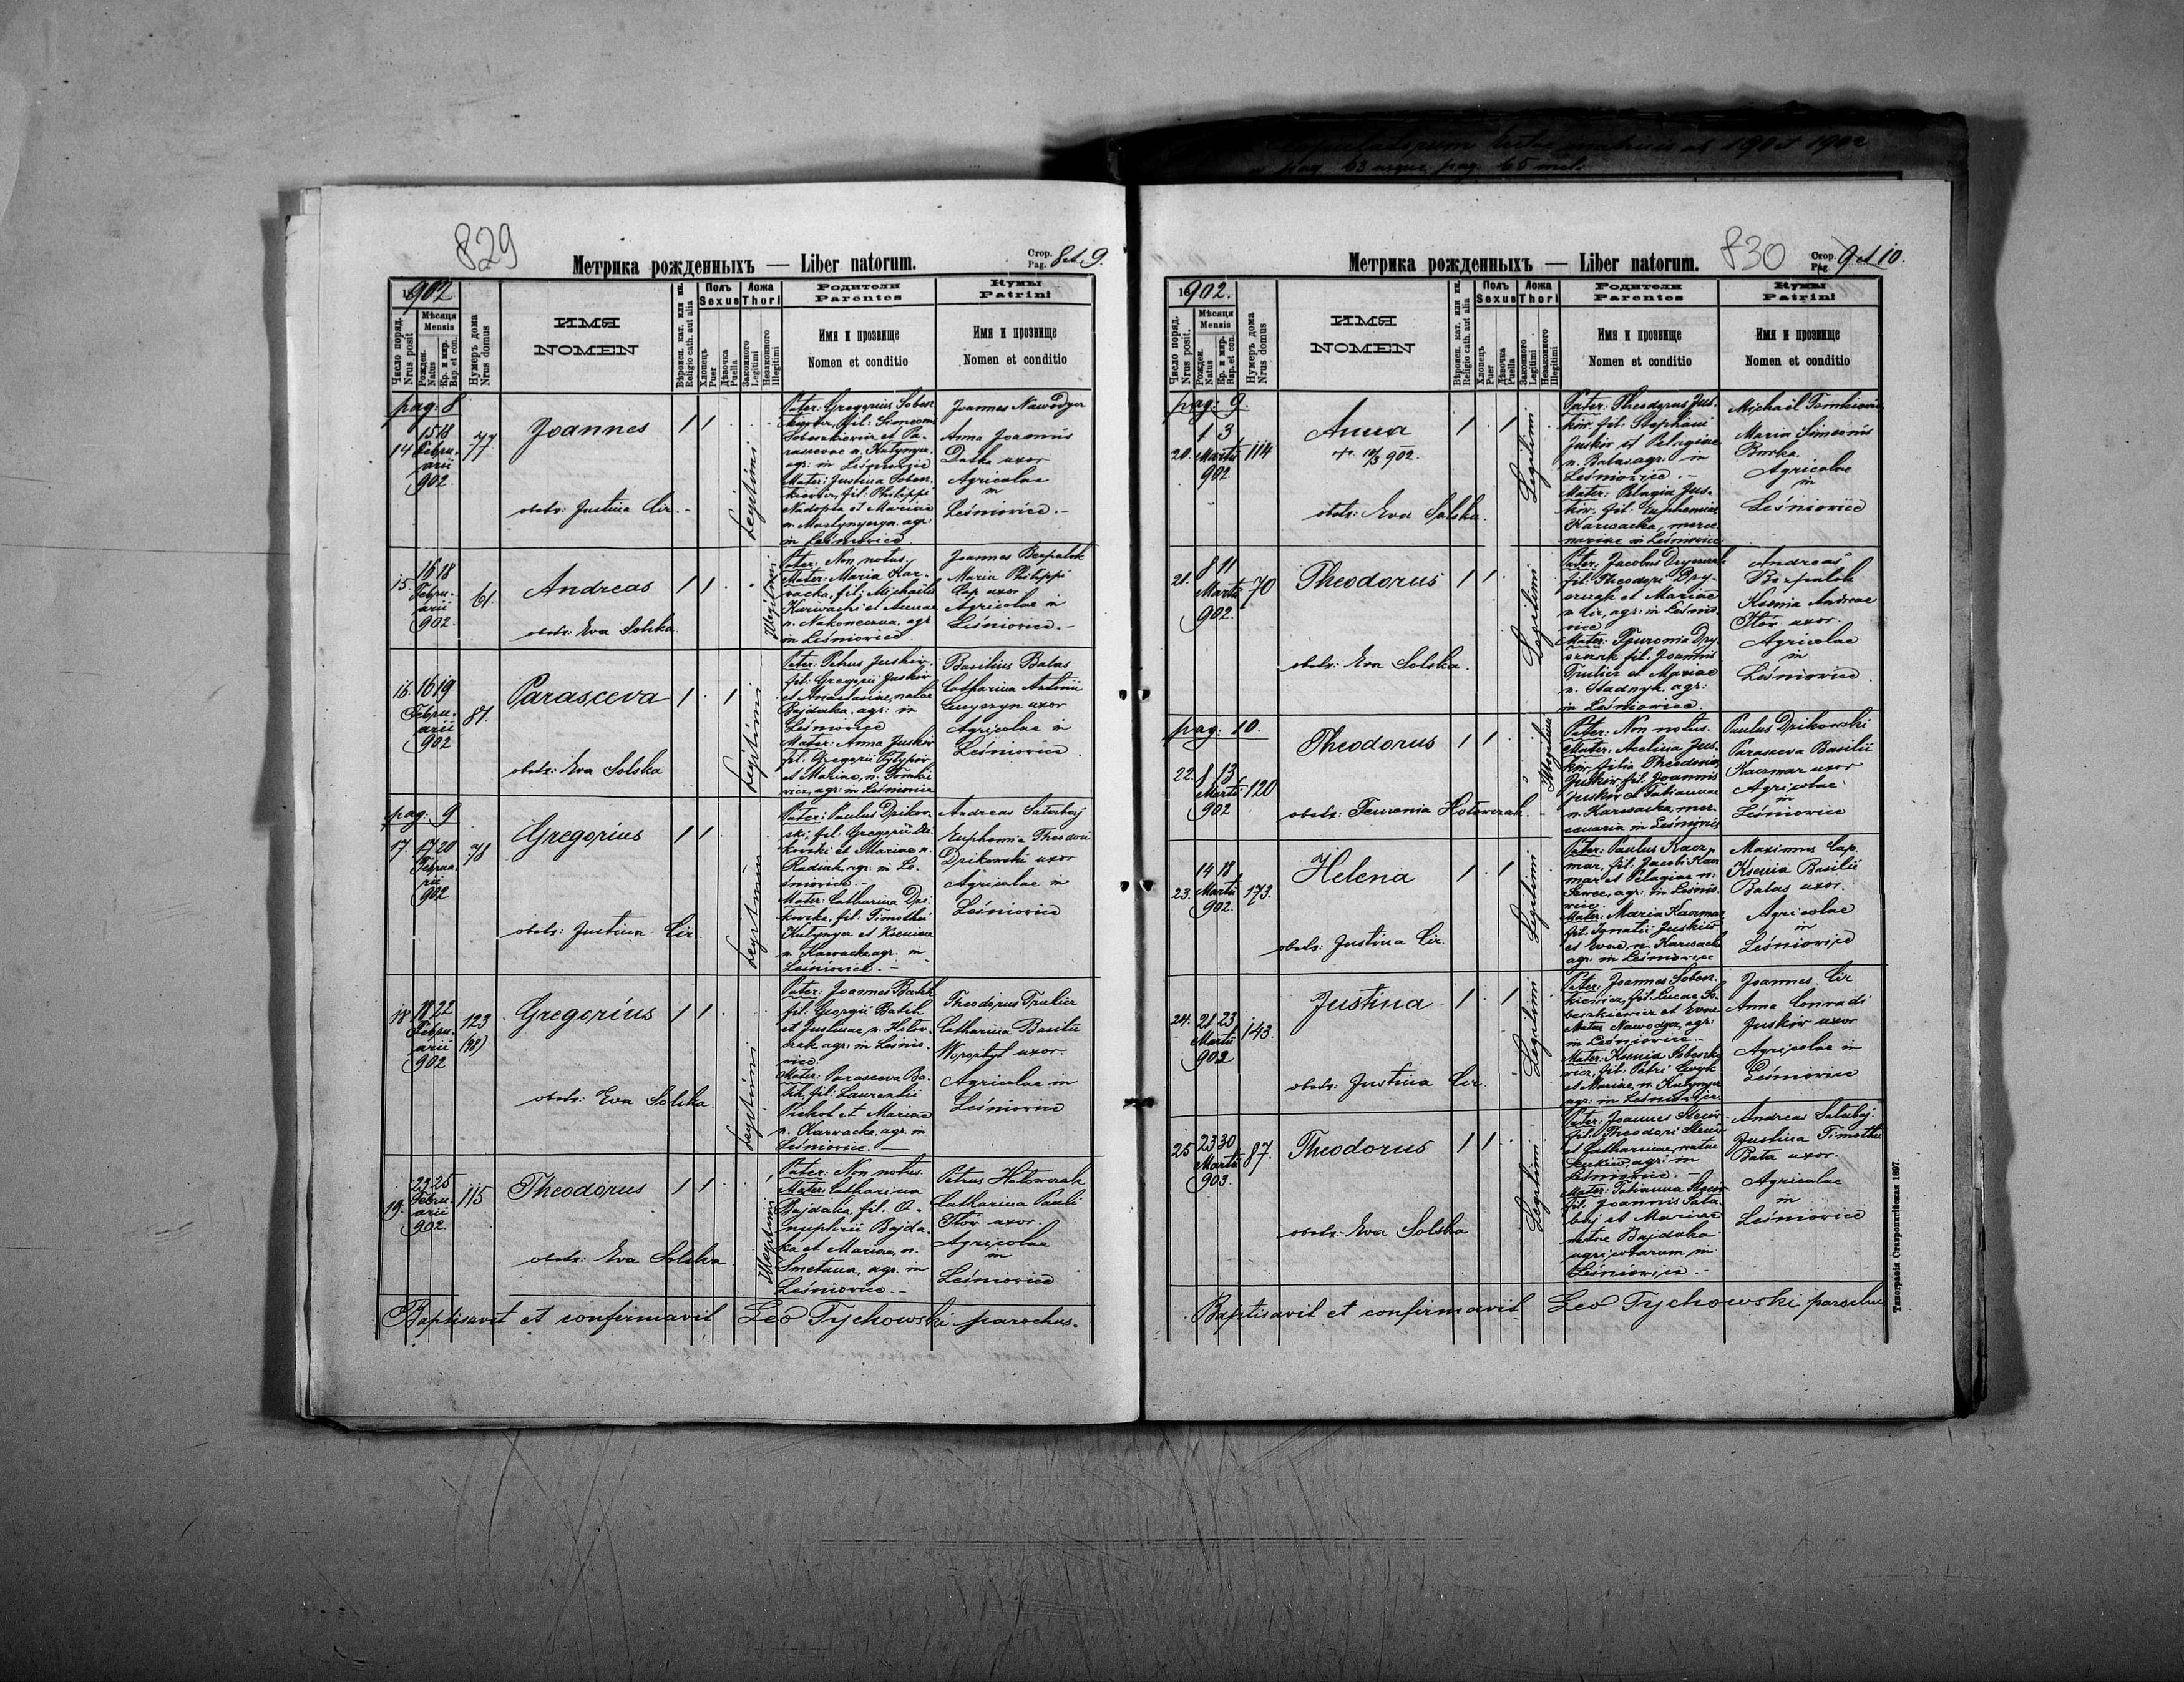 829
Метрика рожденныхъ — Liber natorum.
Стор.
Pag. 8 et 9.
1902
Число поряд.
Nrus posit
Мѣсяця
Mensis
Рожден.
Natus
Кр. и мир.
Bap. et con.
Нумеръ дома
Nrus domus
ИМЯ
NOMEN
Вѣроисп. кат. или ин.
Religio cath. aut alia
Полъ
Sexus
Хлопецъ
Puer
Дѣвочка
Puella
Ложа
Thori
Законного
Legitimi
Незаконного
Illegitimi
Родители
Parentes
Имя и прозвище
Nomen et conditio
Кумы
Patrini
Имя и прозвище
Nomen et conditio
pag: 8
14
15 18
Febru-
arii
902.
77
Joannes
obstr: Justina Cir.-
Legitimi
Pater: Gregorius Sobesz
kiewicz, fil: Simeonis
Sobeszkiewicz et Pa-
rascevae n. Kutynycz.
agr: in Leśniowice
Mater: Justina Sobesz
kiewicz, fil: Philippi
Nadopta et Mariae
n. Martynyszyn. agr:
in Leśniowice.
Joannes Nawodycz
Anna Joannis
Datka uxor
Agricolae
in
Leśniowice.-
15
16 18
Febru-
arii
902.
61.
Andreas
obstr: Eva Solska
Illegitimi
Pater: Non notus.
Mater: Maria Kar-
wacka, fil: Michaelis
Karwacki et Annae
n. Nakoneczna, agr
in Leśniowice
Joannes Bezpalok
Maria Philippi
Cap uxor
Agricolae in
Leśniowice.-
16.
16 19
Febru-
arii
902
81.
Parasceva
obstr: Eva Solska
Legitimi
Pater: Petrus Juskiw.
fil: Gregorii Juskiw
et Anastasiae, natae
Bajdaka. agr: in
Leśniowice
Mater: Anna Juskiw
fil: Gregorii Pylypiw
et Mariae, n. Tomke
wicz, agr: in Leśniowice
Basilius Balas
Catharina Antonii
uxor
Agricolae in
Leśniowice.
pag: 9
17.
17 20
Februa
rii
902
78
Gregorius
obstr: Justina Cir
Legitimi
Pater: Paulus Dzikow-
ski, fil: Gregorii Dzi-
kowski et Mariae n.
Radiuk, agr: in Le-
śniowice.-
Mater: Catharina Dzi-
kowska, fil: Timothei
Kutynycz et Kseniae
n. Karwacka, agr. in
Leśniowice.-
Andreas Satabaj
Euphemia Theodori
Dzikowski uxor
Agricolae in
Leśniowice
18
18 22
Febru-
arii
902
123
(98)
Gregorius
obstr: Eva Solska
Legitimi
Pater: Joannes Batih
fil: Georgii Batih
et Justinae, n. Hołow-
czak, agr: in Leśnio-
wice.
Mater: Parasceva Ba-
tih, fil: Laurentii
Pichot et Mariae
n. Karwacka, agr. in
Leśniowice.-
Theodorus Trulicz
Catharina Basilii
Worobyt uxor.
Agricolae in
Leśniowice
19.
23 25
Febru-
arii
902.
115
Theodorus
obstr: Eva Solska
Illegitimi
Pater: Non notus.
Mater: Catharina
Bajdaka, fil. O-
nuphrii Bajda-
ka et Mariae, n.
Smetana, agr. in
Leśniowice.-
Petrus Hołowczak
Catharina Pauli
Tkw uxor.
Agricolae
in
Leśniowice
Baptisavit et confirmavit Leo Tychowski parochus.
Copulatorum hujus matricis ab 1901 et 1902
a pag. 63 usque pag. 65 incl.
Метрика рожденныхъ — Liber natorum.
830
Стор.
Pag. 9 et 10.
1902.
Число поряд.
Nrus posit.
Мѣсяця
Mensis
Рожден.
Natus
Кр. и мир.
Bap. et con.
Нумеръ дома
Nrus domus
ИМЯ
NOMEN
Вѣроисп. кат. или ин.
Religio cath. aut alia
Полъ.
Sexus
Хлопецъ
Puer
Дѣвочка
Puella
Ложа
Thori
Законного
Legitimi
Незаконного
Illegitimi
Родители
Parentes
Имя и прозвище
Nomen et conditio
Кумы
Patrini
Имя и прозвище
Nomen et conditio
pag: 9.
20.
1 3
Martii
902.
114
Anna
902.
obstr: Eva Solska.
Legitimi
Pater: Theodorus Jus-
kiw. fil: Stephani
Juskiw et Pelagiae
n. Balas. agr: in
Leśniowice.-
Mater: Pelagia Jus-
kiw, fil: Euphemiae
Karwacka, merce-
nariae in Leśniowice
Michael Tomkiewicz
Maria Simeonis
Burka.
Agricolae
in
Leśniowice
21.
8 11
Martii
902.
70
Theodorus
obstr: Eva Solska.
Legitimi
Pater: Jacobus Drymak
fil: Theodori
et Mariae
n. Cir, agr: in Leśnio-
wice
Mater: Fenronia
fil: Joannis
Trulicz et Mariae
n. Stadnyk. agr:
in Leśniowice.
Andreas
Bezpalok
Ksenia Andreae
Tkw uxor.
Agricolae
in
Leśniowice.
pag: 10.
22.
8 13
Martii
902
120
Theodorus
obstr: Fenronia Hołowczak.
Illegitimi
Pater: Non notus.
Mater: Acelina Jus-
kiw, filia Theodosiae
Juskiw, fil: Joannis
Juskiw et Tatiannae
n. Karwacka, mer-
cenaria in Leśniowice
Paulus Dzikowski
Parasceva Basilii
Kaczmar uxor
Agricolae
in
Leśniowice
23.
14 18
Martii
902.
173.
Helena
obstr: Justina Cir.
Legitimi
Pater: Paulus Kacz-
mar, fil: Jacobi Kacz
mar et Pelagiae n.
Szwec, agr: in Leśnio-
wice.
Mater: Maria Kaczmar
fil: Ignatii Juskiw
et Evae, n. Karwacka
agr: in Leśniowice
Maximus Cap.
Ksenia Basilii
Balas uxor.
Agricolae
in
Leśniowice
24.
21 23
Martii
902
143.
Justina
obstr: Justina Cir.
Legitimi
Pater: Joannes Sobesz-
kiewicz, fil: Lucae So-
beszkiewicz et Evae
natae Nawodycz, agr:
in Leśniowice.-
Mater: Ksenia Sobeszke
wicz, fil: Petri
et Mariae, n. Kutynycz
agr: in Leśniowice
Joannes Cir
Anna Conradi
Juskiw uxor
Agricolae in
Leśniowice
25
23 30
Martii
903.
87.
Theodorus
obstr: Eva Solska
Legitimi
Pater: Joannes Steciw
fil: Theodori Steciw
et Catharinae, natae
Senkiw, agr: in
Leśniowice.-
Mater: Tatianna Steciw
fil: Joannis Sata-
baj et Mariae
natae Bajdaka
agricolarum in
Leśniowice.-
Andreas Satabaj.
Justina Timothei
Bata uxor.
Agricolae
in
Leśniowice
Baptisavit et confirmavit Leo Tychowski parochus
Типографія Ставропигійская 1897.